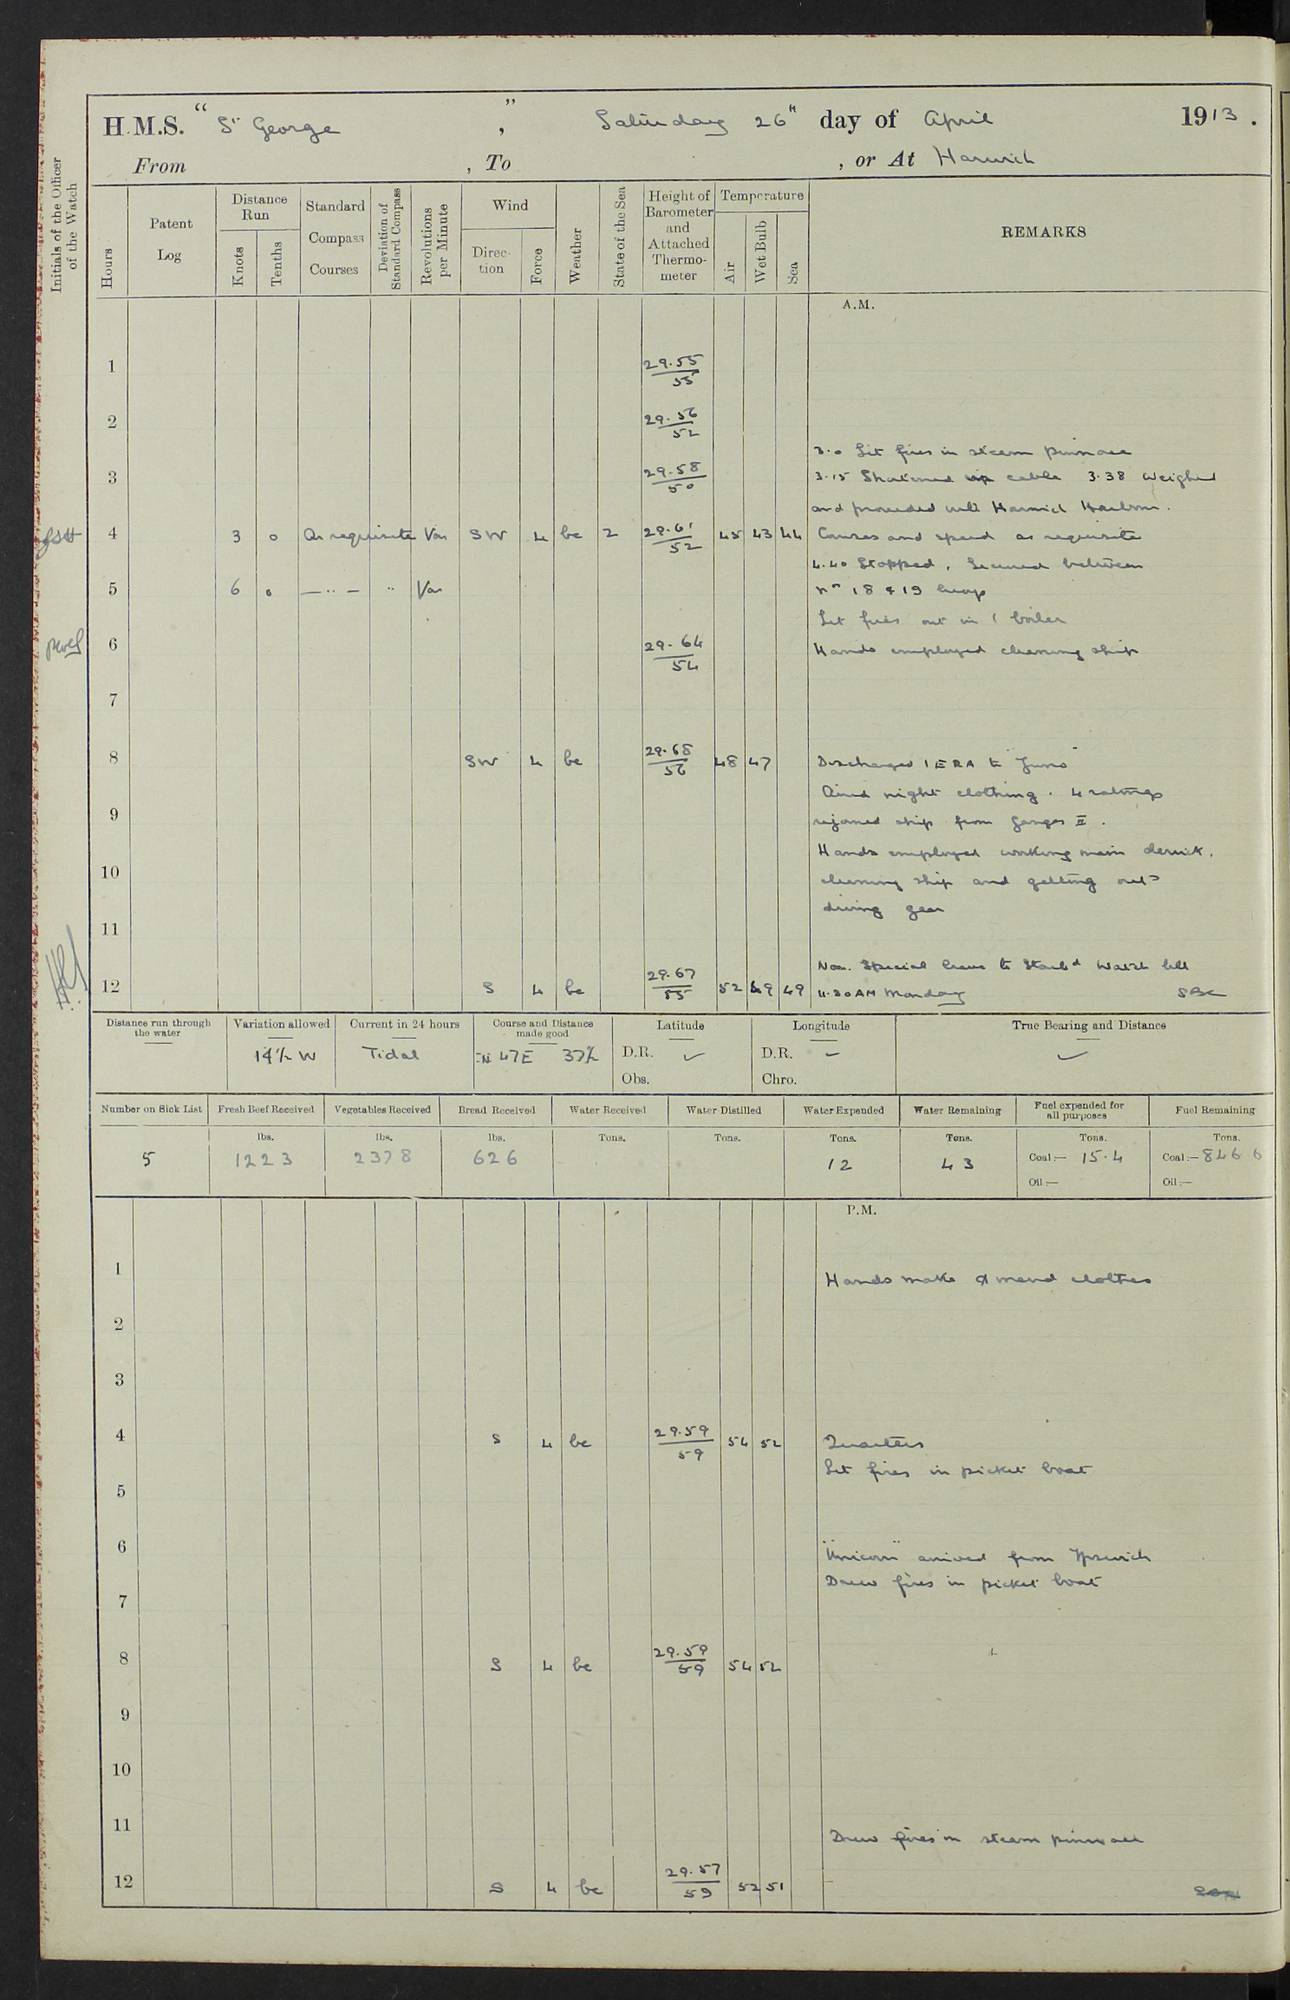 H.M.S. "St George", Saturday 26th day of April 1913.
From , To , or At Harwich
Initials of the Officer of the Watch
Hours
Patent Log
Distance Run
Knots
Tenths
Standard Compass Courses
Deviation of Standard Compass
Revolutions per Minute
Wind
Direction
Force
Weather
State of the Sea
Height of Barometer and Attached Thermometer
Temperature
Air
Wet Bulb
Sea
REMARKS
A.M.
1 29.55/55
2 29.56/52
3.0 Lit fires in steam pinnace
3 29.58/50 3.15 Shortened in cable 3.38 Weighed
and proceeded into Harwich Harbour.
4 3 0 As requisite Var SW 4 bc 2 29.61/52 45 43 44 Courses and speed as requisite
4.40 Stopped, Secured between
5 6 0 — " — " Var Nos 18 & 19 buoys
Let fires out in 1 boiler
6 29.64/54 Hands employed cleaning ship
7
8 SW 4 bc 29.68/56 48 47 Discharged 1 ERA to "Juno"
Aired night clothing. 4 ratings
9 rejoined ship from Ganges II.
Hands employed working main derrick,
10 cleaning ship and getting out
diving gear
11
Noon. Special leave to Starbd Watch till
12 S 4 bc 29.67/55 52 49 49 4.30 AM Monday
Distance run through the water
Variation allowed
14½ W
Current in 24 hours
Tidal
Course and Distance made good
N 47 E 37½
Latitude
D.R. ✓
Obs.
Longitude
D.R. –
Chro.
True Bearing and Distance
✓
Number on Sick List
5
Fresh Beef Received
lbs.
1223
Vegetables Received
lbs.
2378
Bread Received
lbs.
626
Water Received
Tons.
Water Distilled
Tons.
Water Expended
Tons.
12
Water Remaining
Tons.
43
Fuel expended for all purposes
Tons.
Coal:— 15.4
Oil:—
Fuel Remaining
Tons.
Coal:— 846 6
Oil:—
P.M.
1 Hands make & mend clothes
2
3
4 S 4 bc 29.59/59 54 52 Quarters
Lit fires in picket boat
5
6 "Unicorn" arrived from Ipswich
Drew fires in picket boat
7
8 S 4 bc 29.59/59 54 52
9
10
11 Drew fires in steam pinnace
12 S 4 bc 29.57/59 52 51